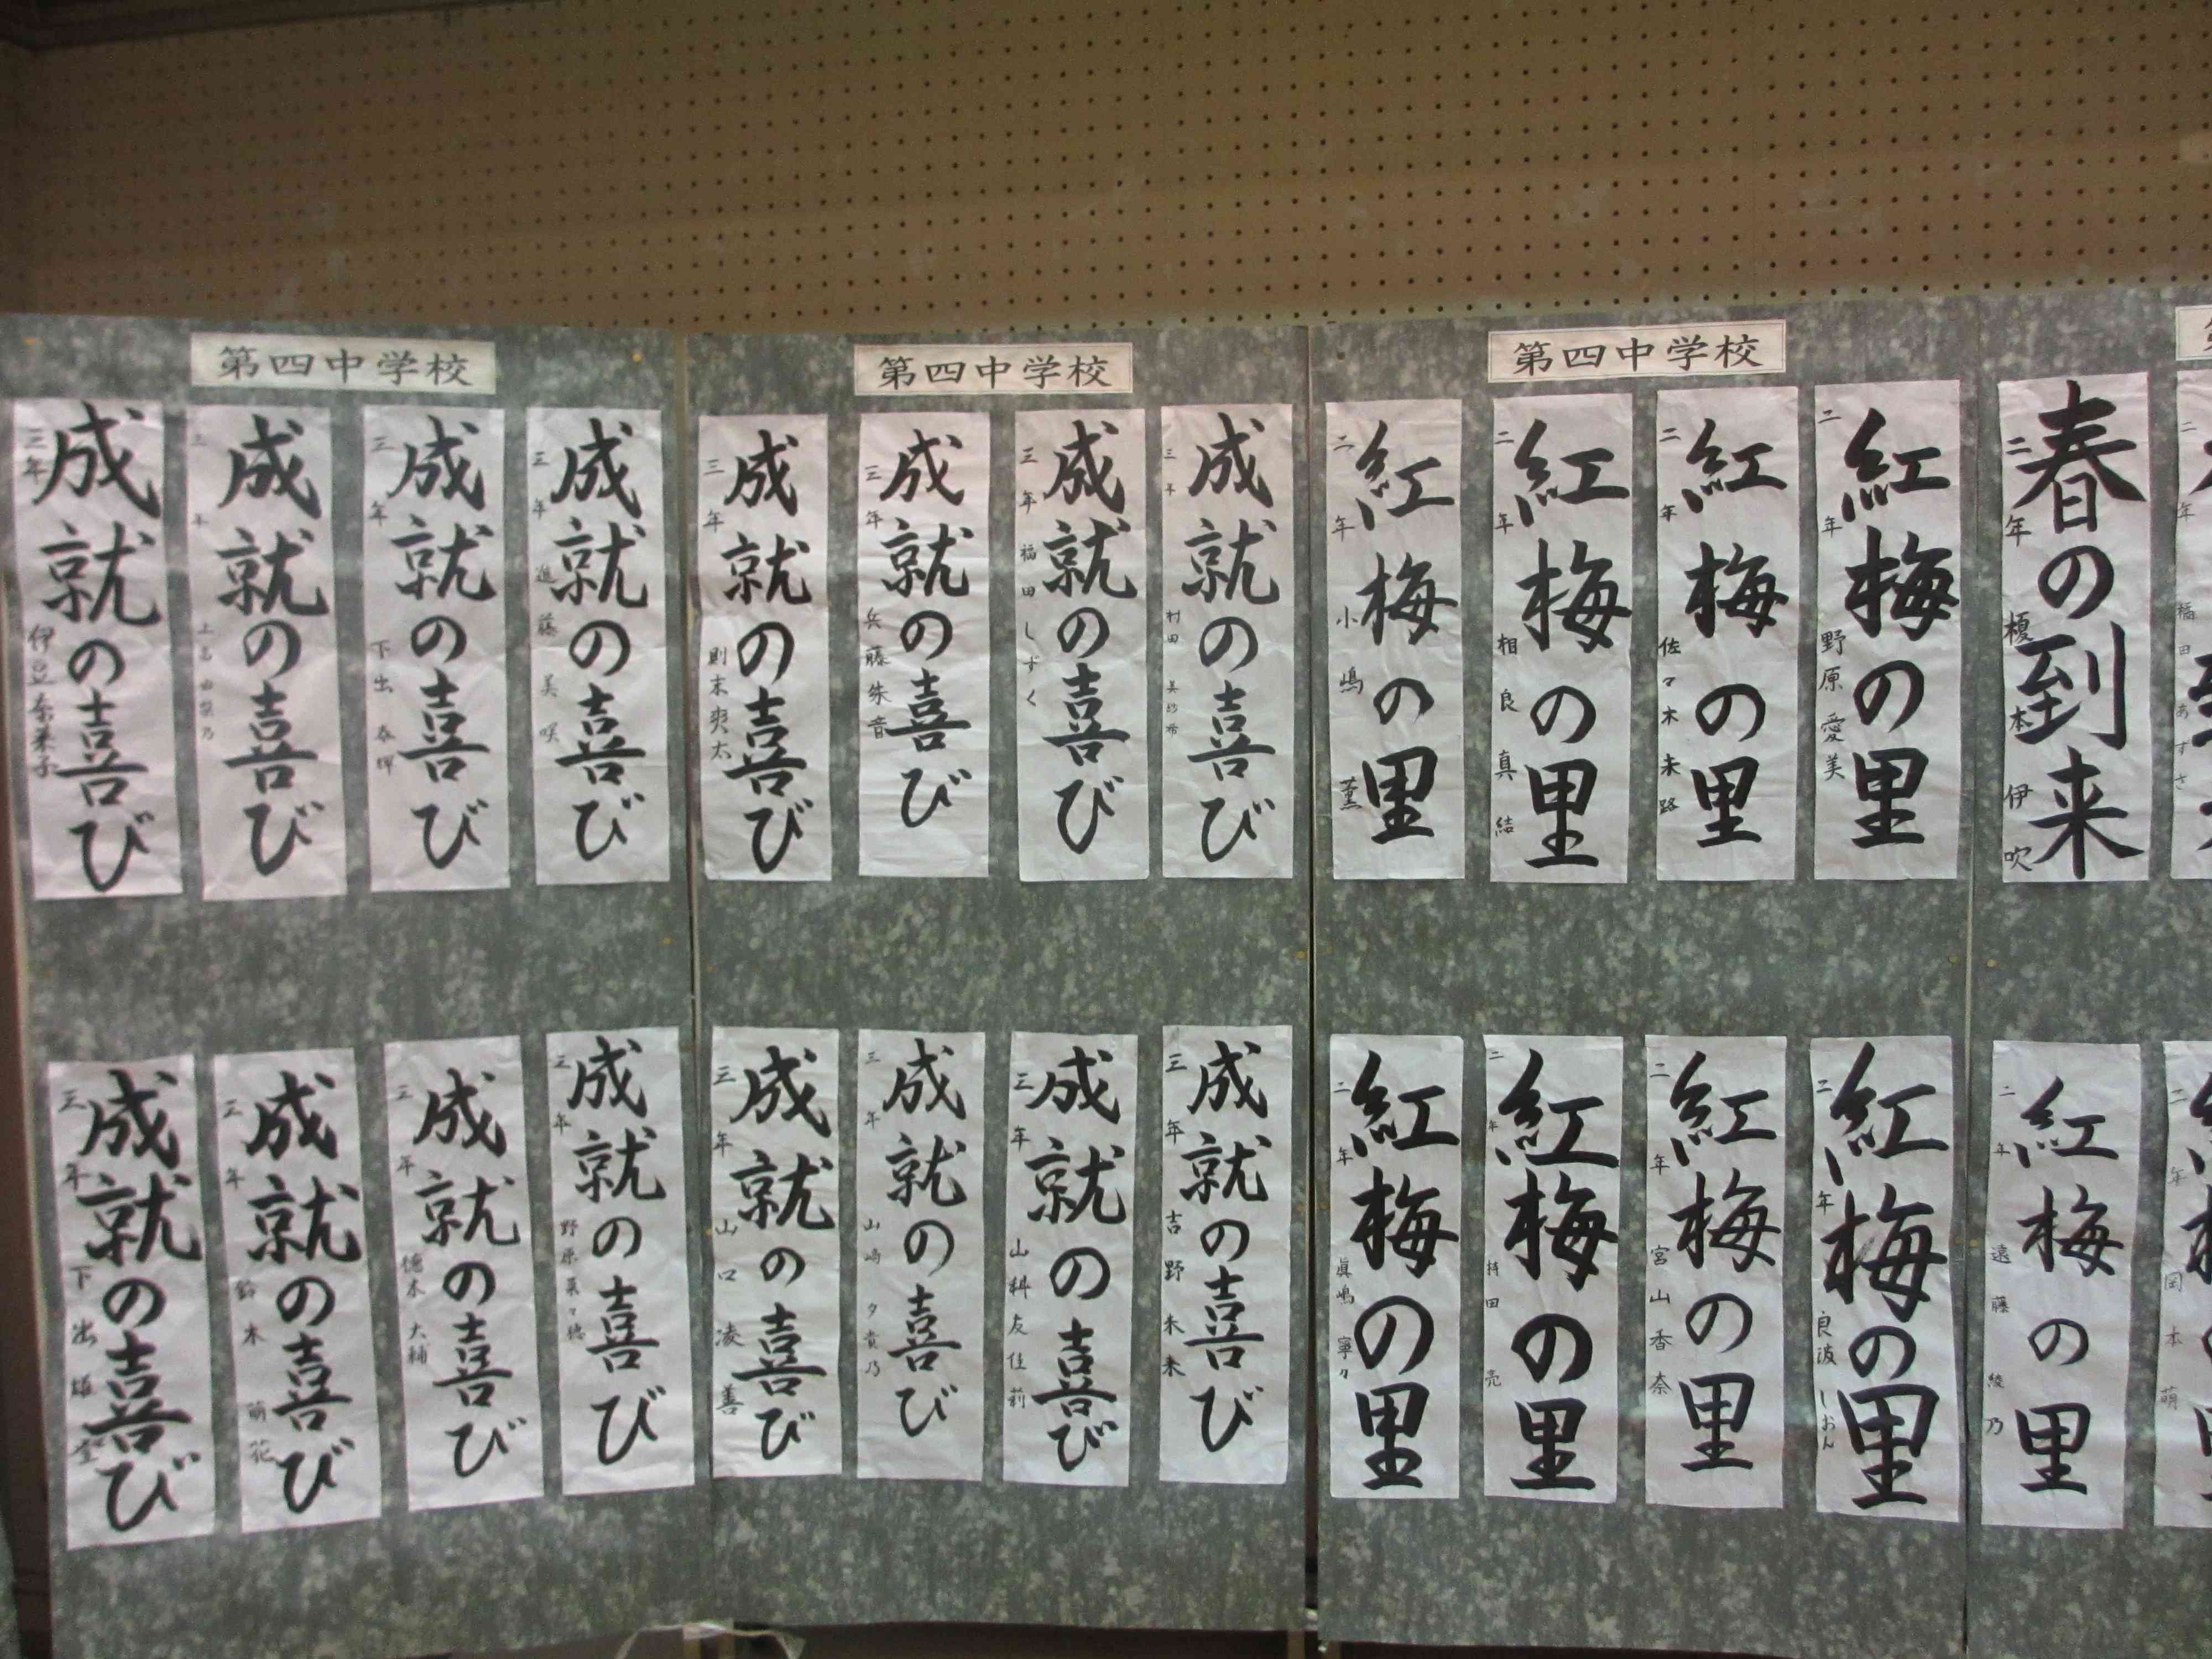 第四中学校
成就の喜び
三年
成就の喜び
成就の喜び
三年
成就の喜び
三年 進藤美咲
第四中学校
成就の喜び
三年 則末爽太
成就の喜び
三年 兵藤朱音
成就の喜び
三年 福田しずく
成就の喜び
村田
第四中学校
紅梅の里
二年 小嶋 薫
紅梅の里
二年 相良真結
紅梅の里
二年 佐々木未路
紅梅の里
二年 野原愛美
春の到来
二年 榎本伊吹
二年 福田あずさ
成就の喜び
三年 下出雄
成就の喜び
三年 鈴木萌花
成就の喜び
三年 徳本大輔
成就の喜び
三年 野原菜々穂
成就の喜び
三年 山口凌善
成就の喜び
三年 山崎夕貴乃
成就の喜び
三年 山科友佳莉
成就の喜び
三年 吉野朱未
紅梅の里
二年 眞嶋寧々
紅梅の里
二年 持田亮
紅梅の里
二年 宮山香奈
紅梅の里
二年 良波しおん
紅梅の里
二年 遠藤綾乃
二年 岡本萌